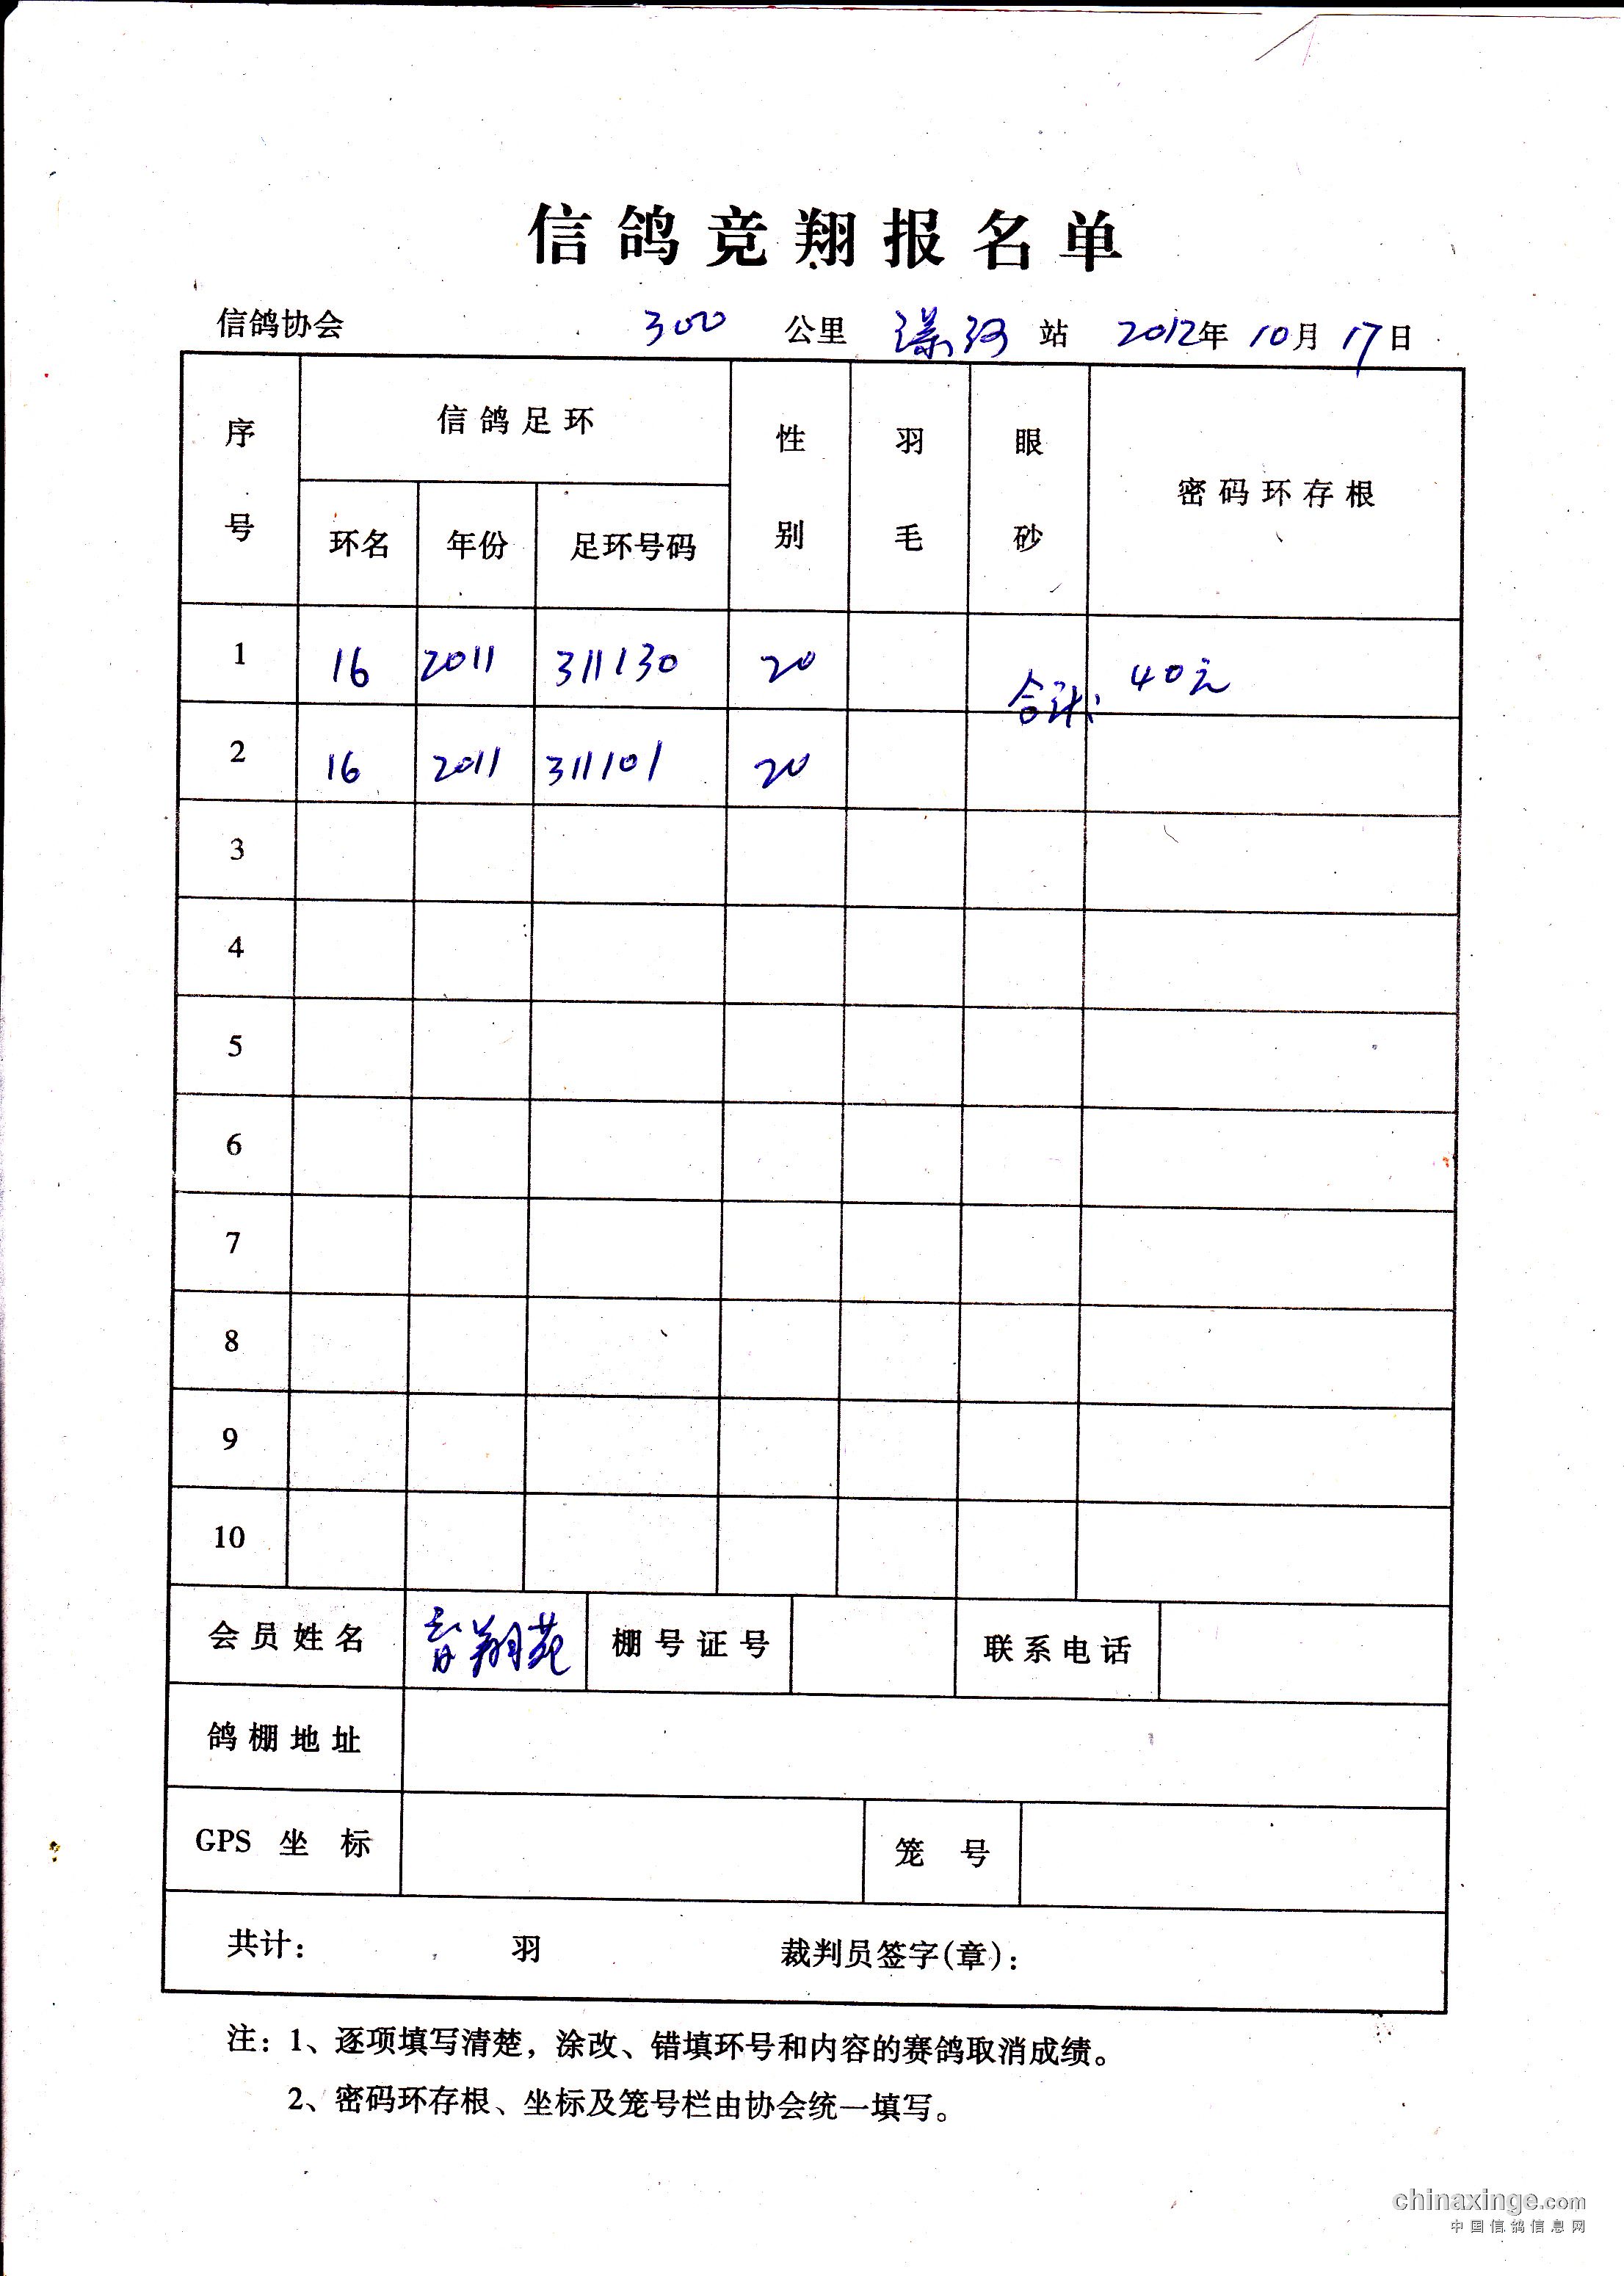 信鸽竞翔报名单
信鸽协会 300 公里 漯河 站 2012年 10月 17日
序号 信鸽足环 性别 羽毛 眼砂 密码环存根
环名 年份 足环号码
1 16 2011 311130 20 合计: 40元
2 16 2011 311101 20
3
4
5
6
7
8
9
10
会员姓名 翔苑 棚号证号 联系电话
鸽棚地址
GPS 坐标 笼号
共计: 羽 裁判员签字(章):
注: 1、逐项填写清楚，涂改、错填环号和内容的赛鸽取消成绩。
2、密码环存根、坐标及笼号栏由协会统一填写。
chinaxinge.com
中国信鸽信息网